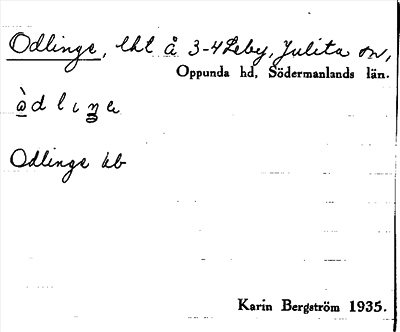 Odlinge, lht å 3-4 Leby, Julita sn,
Oppunda hd, Södermanlands län.
ὰdlıŋe
Odlinge kb
Karin Bergström 1935.